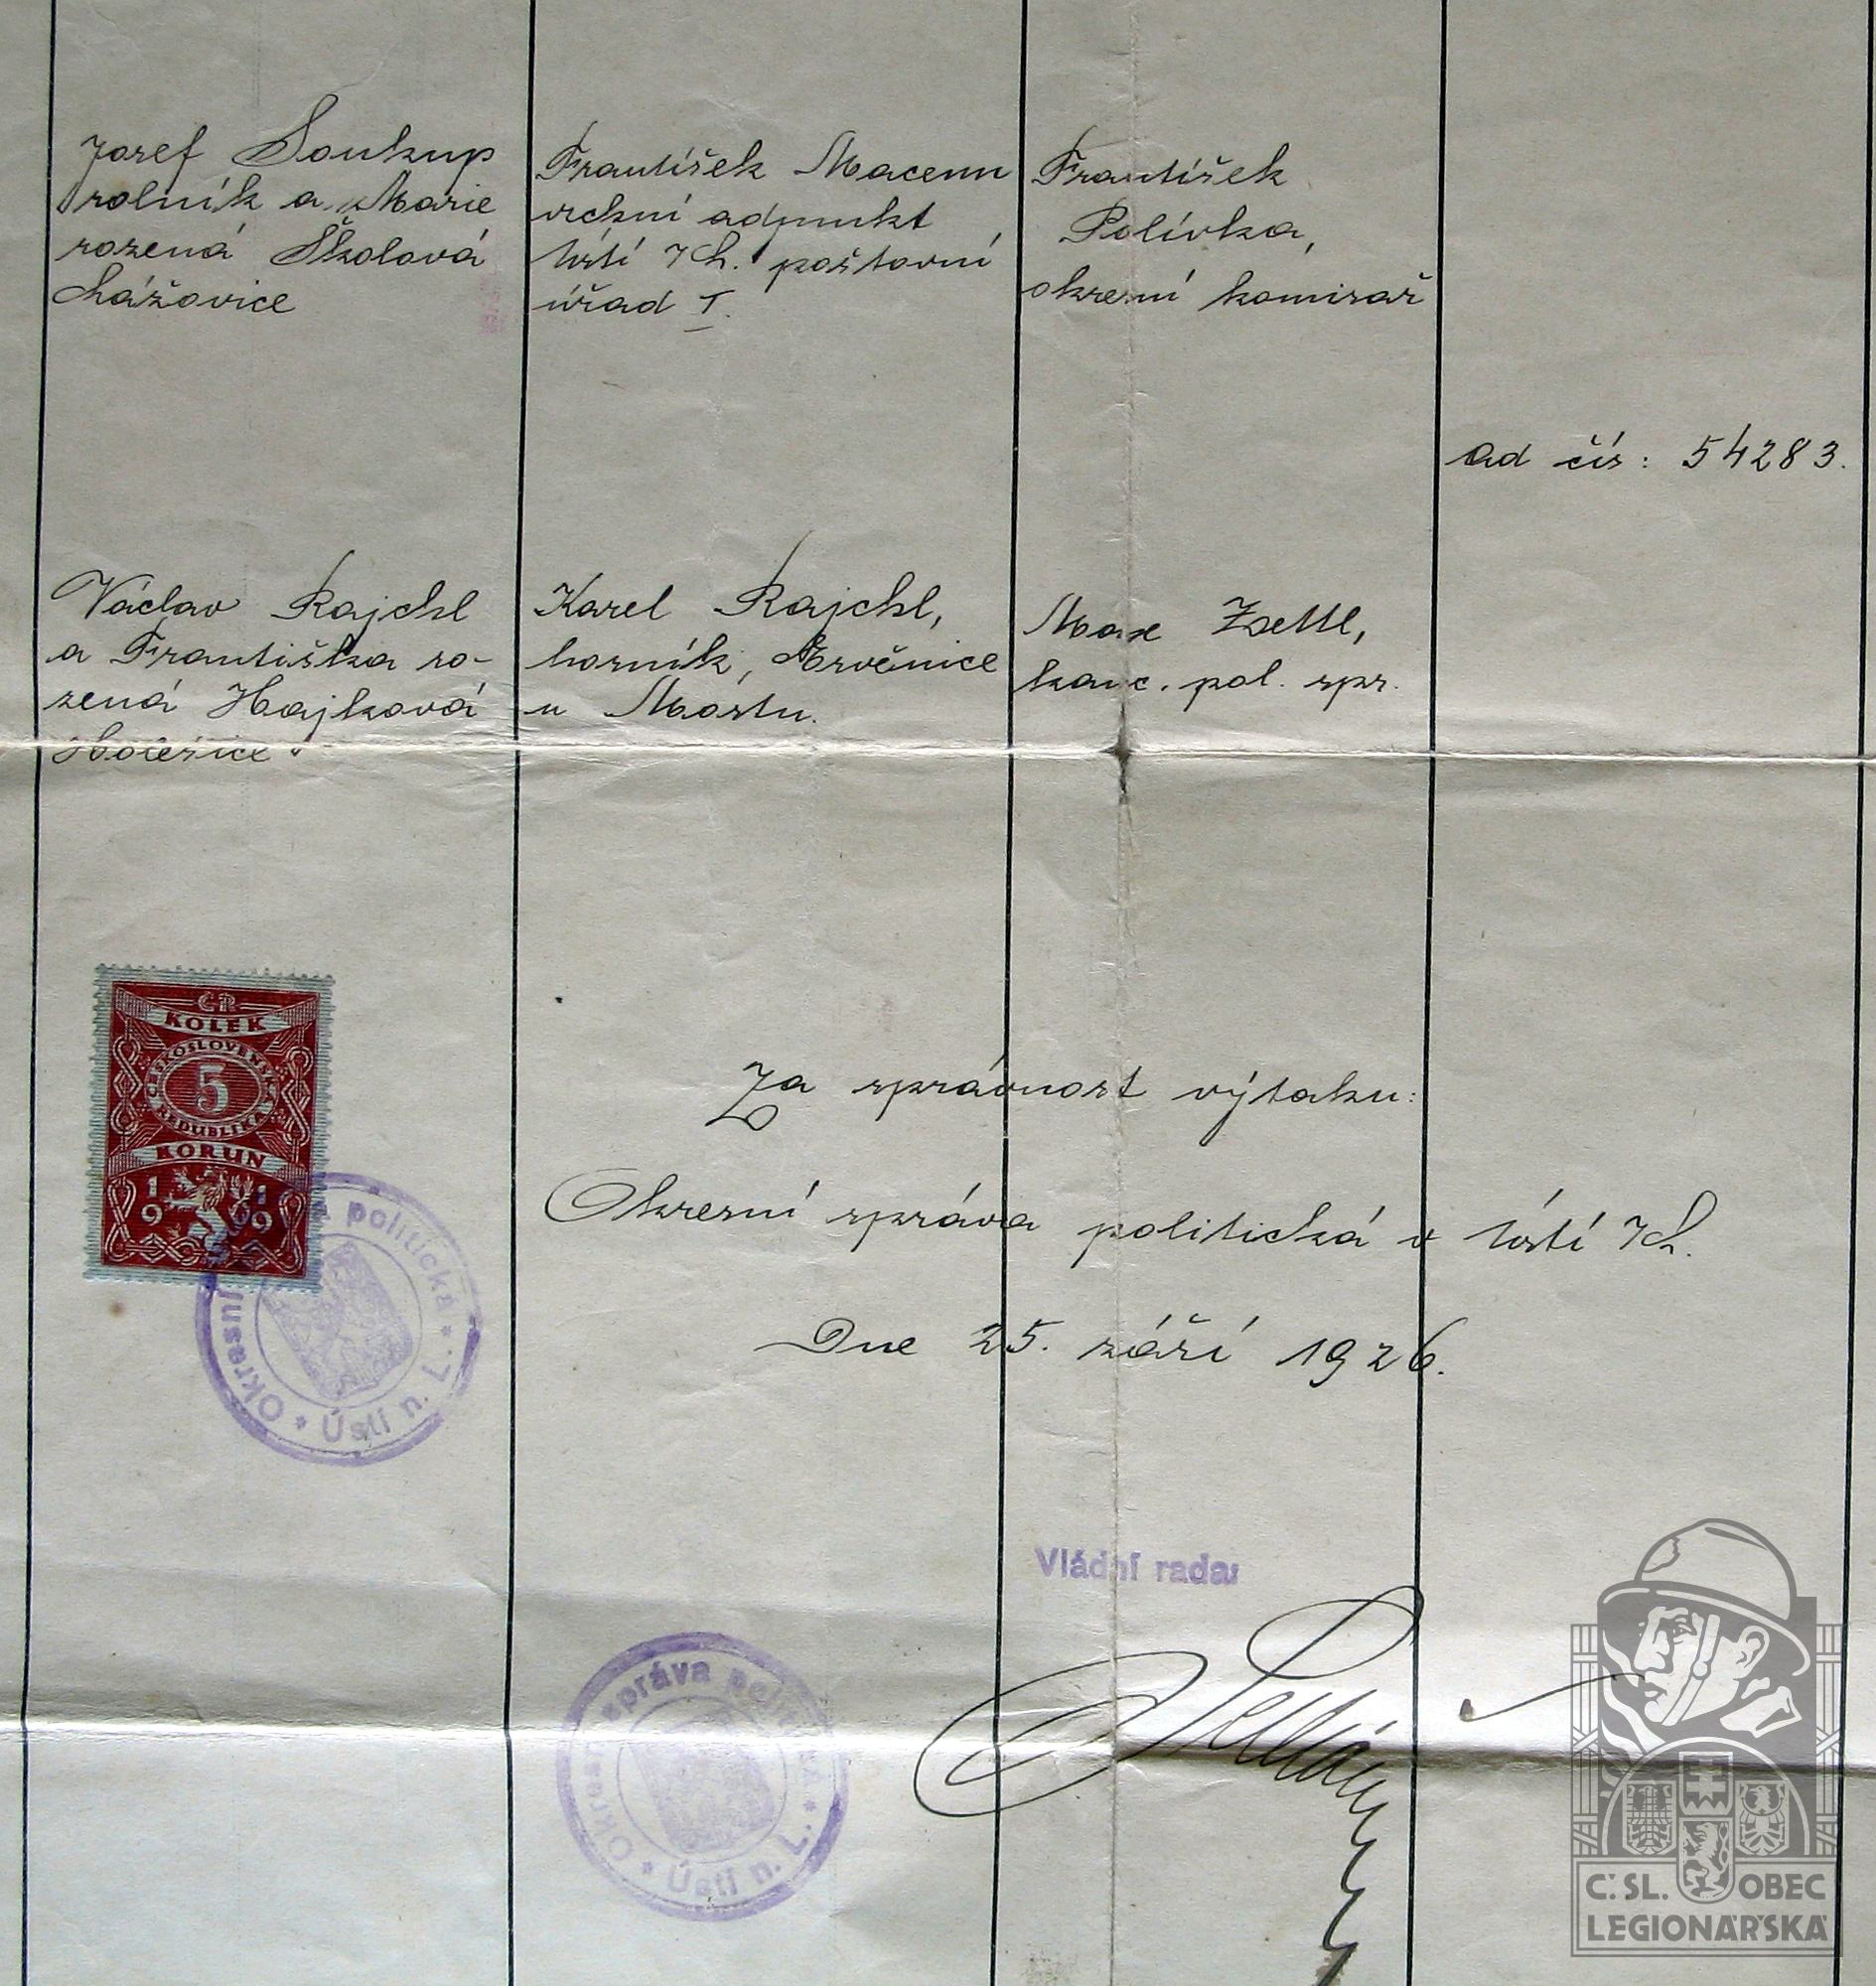 Josef Soukup
rolník a Marie
rozená Školová
Lážovice
František Macenn
vrchní adpunkt
Ústí n/L. poštovní
úřad I.
František
Polívka,
okresní komisař
ad čís: 54283.
Václav Rajchl
a Františka ro-
zená Hajková
Holešice
Karel Rajchl,
horník,
u Mostu.
Max
kanc. pol. spr.
ČR
KOLEK
ČESKOSLOVENSKÁ
5
REPUBLIKA
KORUN
1919
Okresní správa politická * Ústí n. L. *
Za správnost výtahu:
Okresní správa politická v Ústí n/L.
Dne 25. září 1926.
Vládní rada:
Okresní správa politická * Ústí n. L. *
Č.SL. OBEC
LEGIONÁŘSKÁ